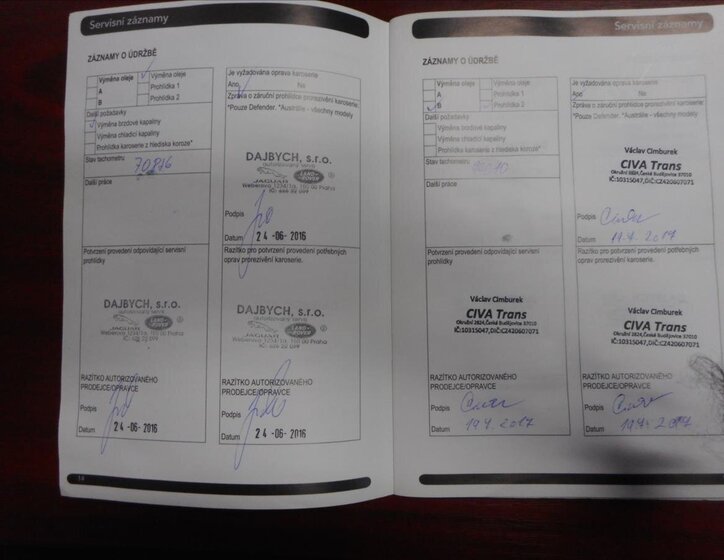 Servisní záznamy
ZÁZNAMY O ÚDRŽBĚ
Výměna oleje
Výměna oleje
A
Prohlídka 1
B
Prohlídka 2
Další požadavky
Výměna brzdové kapaliny
Výměna chladicí kapaliny
Prohlídka karoserie z hlediska koroze*
Stav tachometru
70876
Další práce
Je vyžadována oprava karoserie
Ano
Ne
Zpráva o záruční prohlídce prorezivění karoserie.
*Pouze Defender. *Austrálie - všechny modely
DAJBYCH, s.r.o.
autorizovaný servis
JAGUAR
LAND ROVER
Podpis
Datum 24-06-2016
Potvrzení provedení odpovídající servisní
prohlídky
DAJBYCH, s.r.o.
autorizovaný servis
JAGUAR
LAND ROVER
RAZÍTKO AUTORIZOVANÉHO
PRODEJCE/OPRÁVCE
Podpis
Datum 24-06-2016
Razítko pro potvrzení provedení potřebných
oprav prorezivění karoserie.
DAJBYCH, s.r.o.
autorizovaný servis
JAGUAR
LAND ROVER
RAZÍTKO AUTORIZOVANÉHO
PRODEJCE/OPRÁVCE
Podpis
Datum 24-06-2016
14
Servisní záznamy
ZÁZNAMY O ÚDRŽBĚ
Výměna oleje
Výměna oleje
A
Prohlídka 1
B
Prohlídka 2
Další požadavky
Výměna brzdové kapaliny
Výměna chladicí kapaliny
Prohlídka karoserie z hlediska koroze*
Stav tachometru
Další práce
Je vyžadována oprava karoserie
Ano
Ne
Zpráva o záruční prohlídce prorezivění karoserie.
*Pouze Defender. *Austrálie - všechny modely
Václav Cimburek
CIVA Trans
Okružní 2824,České Budějovice 37010
IČ:10315047,DIČ:CZ420607071
Podpis
Datum 19.7. 2017
Potvrzení provedení odpovídající servisní
prohlídky
Václav Cimburek
CIVA Trans
Okružní 2824,České Budějovice 37010
IČ:10315047,DIČ:CZ420607071
RAZÍTKO AUTORIZOVANÉHO
PRODEJCE/OPRÁVCE
Podpis
Datum 19.7. 2017
Razítko pro potvrzení provedení potřebných
oprav prorezivění karoserie.
Václav Cimburek
CIVA Trans
Okružní 2824,České Budějovice 37010
IČ:10315047,DIČ:CZ420607071
RAZÍTKO AUTORIZOVANÉHO
PRODEJCE/OPRÁVCE
Podpis
Datum 19.7. 2017